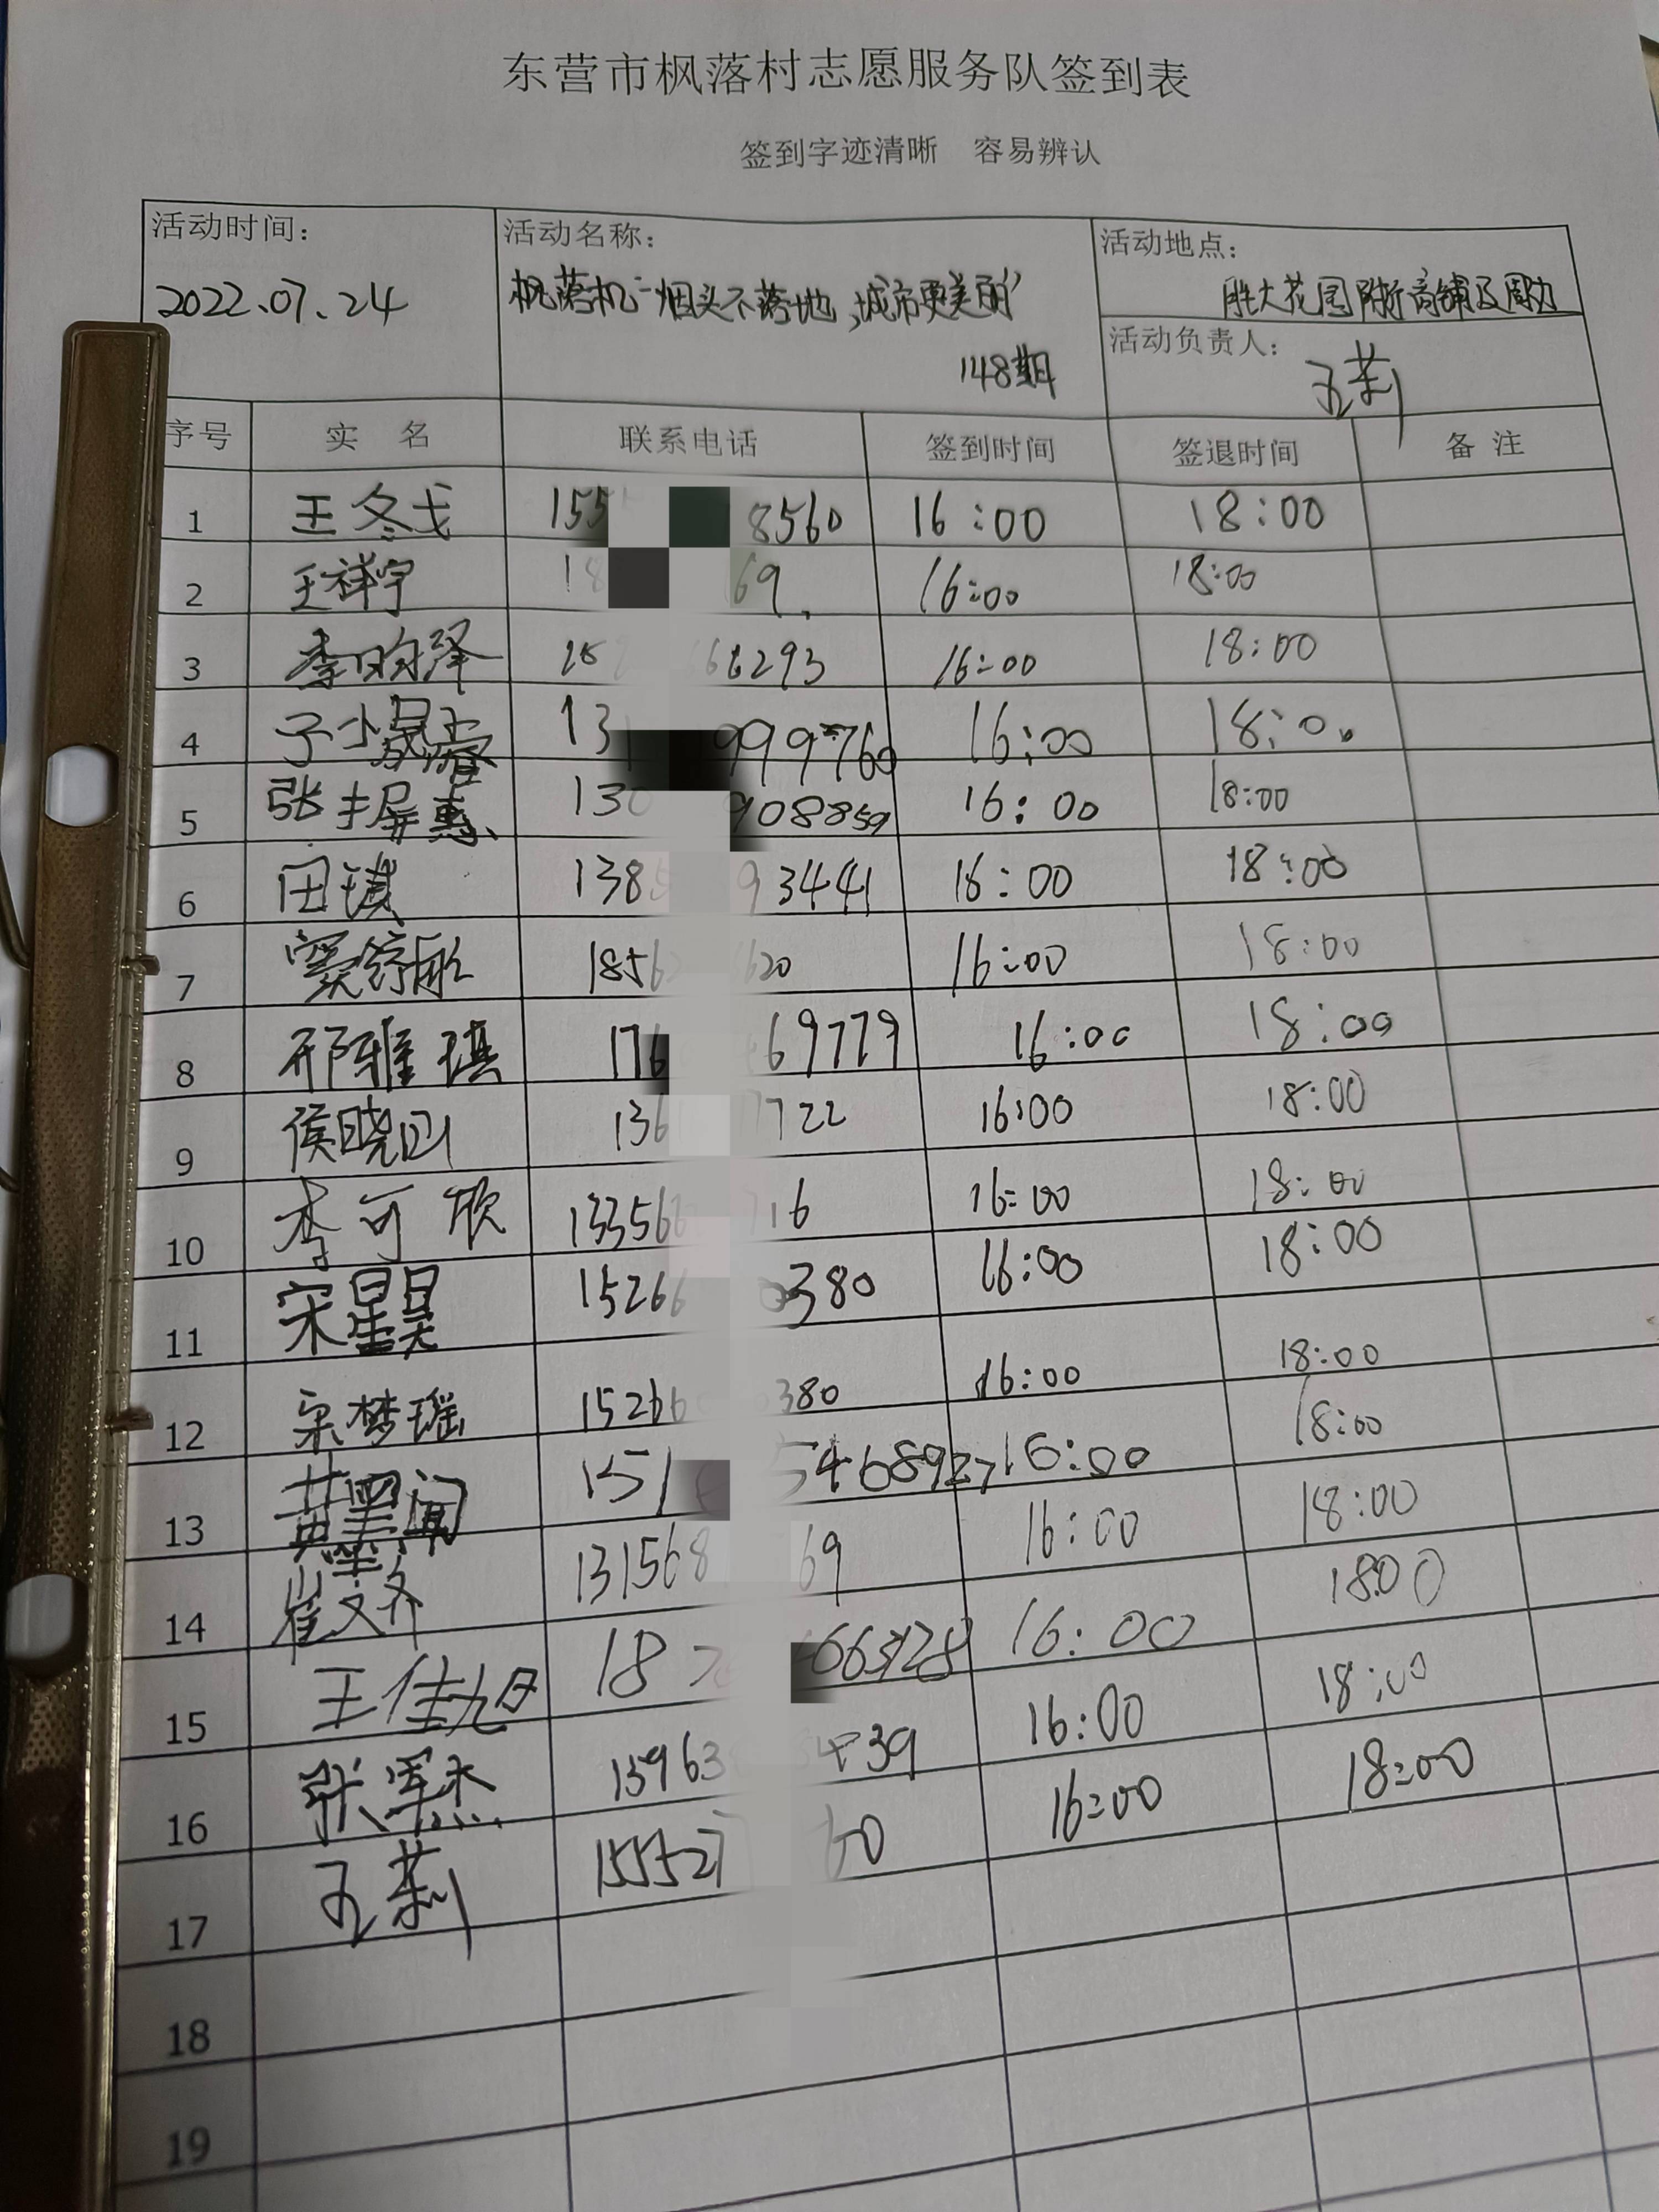 东营市枫落村志愿服务队签到表
签到字迹清晰 容易辨认
活动时间: 活动名称: 活动地点:
2022.07.24 枫落机"烟头不落地,城市更美丽" 胜大花园附近商铺及周边
148期 活动负责人: 王莉
序号 实 名 联系电话 签到时间 签退时间 备 注
1 王冬戈 155 8560 16:00 18:00
2 王祥宇 18 69 16:00 18:00
3 李昀泽 66293 16:00 18:00
4 13 999760 16:00 18:00
5 张 130 908859 16:00 18:00
6 田 138 93441 16:00 18:00
7 窦舒 1856 620 16:00 18:00
8 邢雅琪 176 69779 16:00 18:00
9 侯晓 136 7722 16:00 18:00
10 李可欣 13356 716 16:00 18:00
11 宋星昊 15266 0380 16:00 18:00
12 宋梦瑶 15266 380 16:00 18:00
13 黄 151 5468927 16:00 18:00
14 崔文齐 131568 69 16:00 18:00
15 王佳旭 18 663728 16:00 18:00
16 张军杰 15963 39 16:00 18:00
17 王莉 155527 60 16:00 18:00
18
19